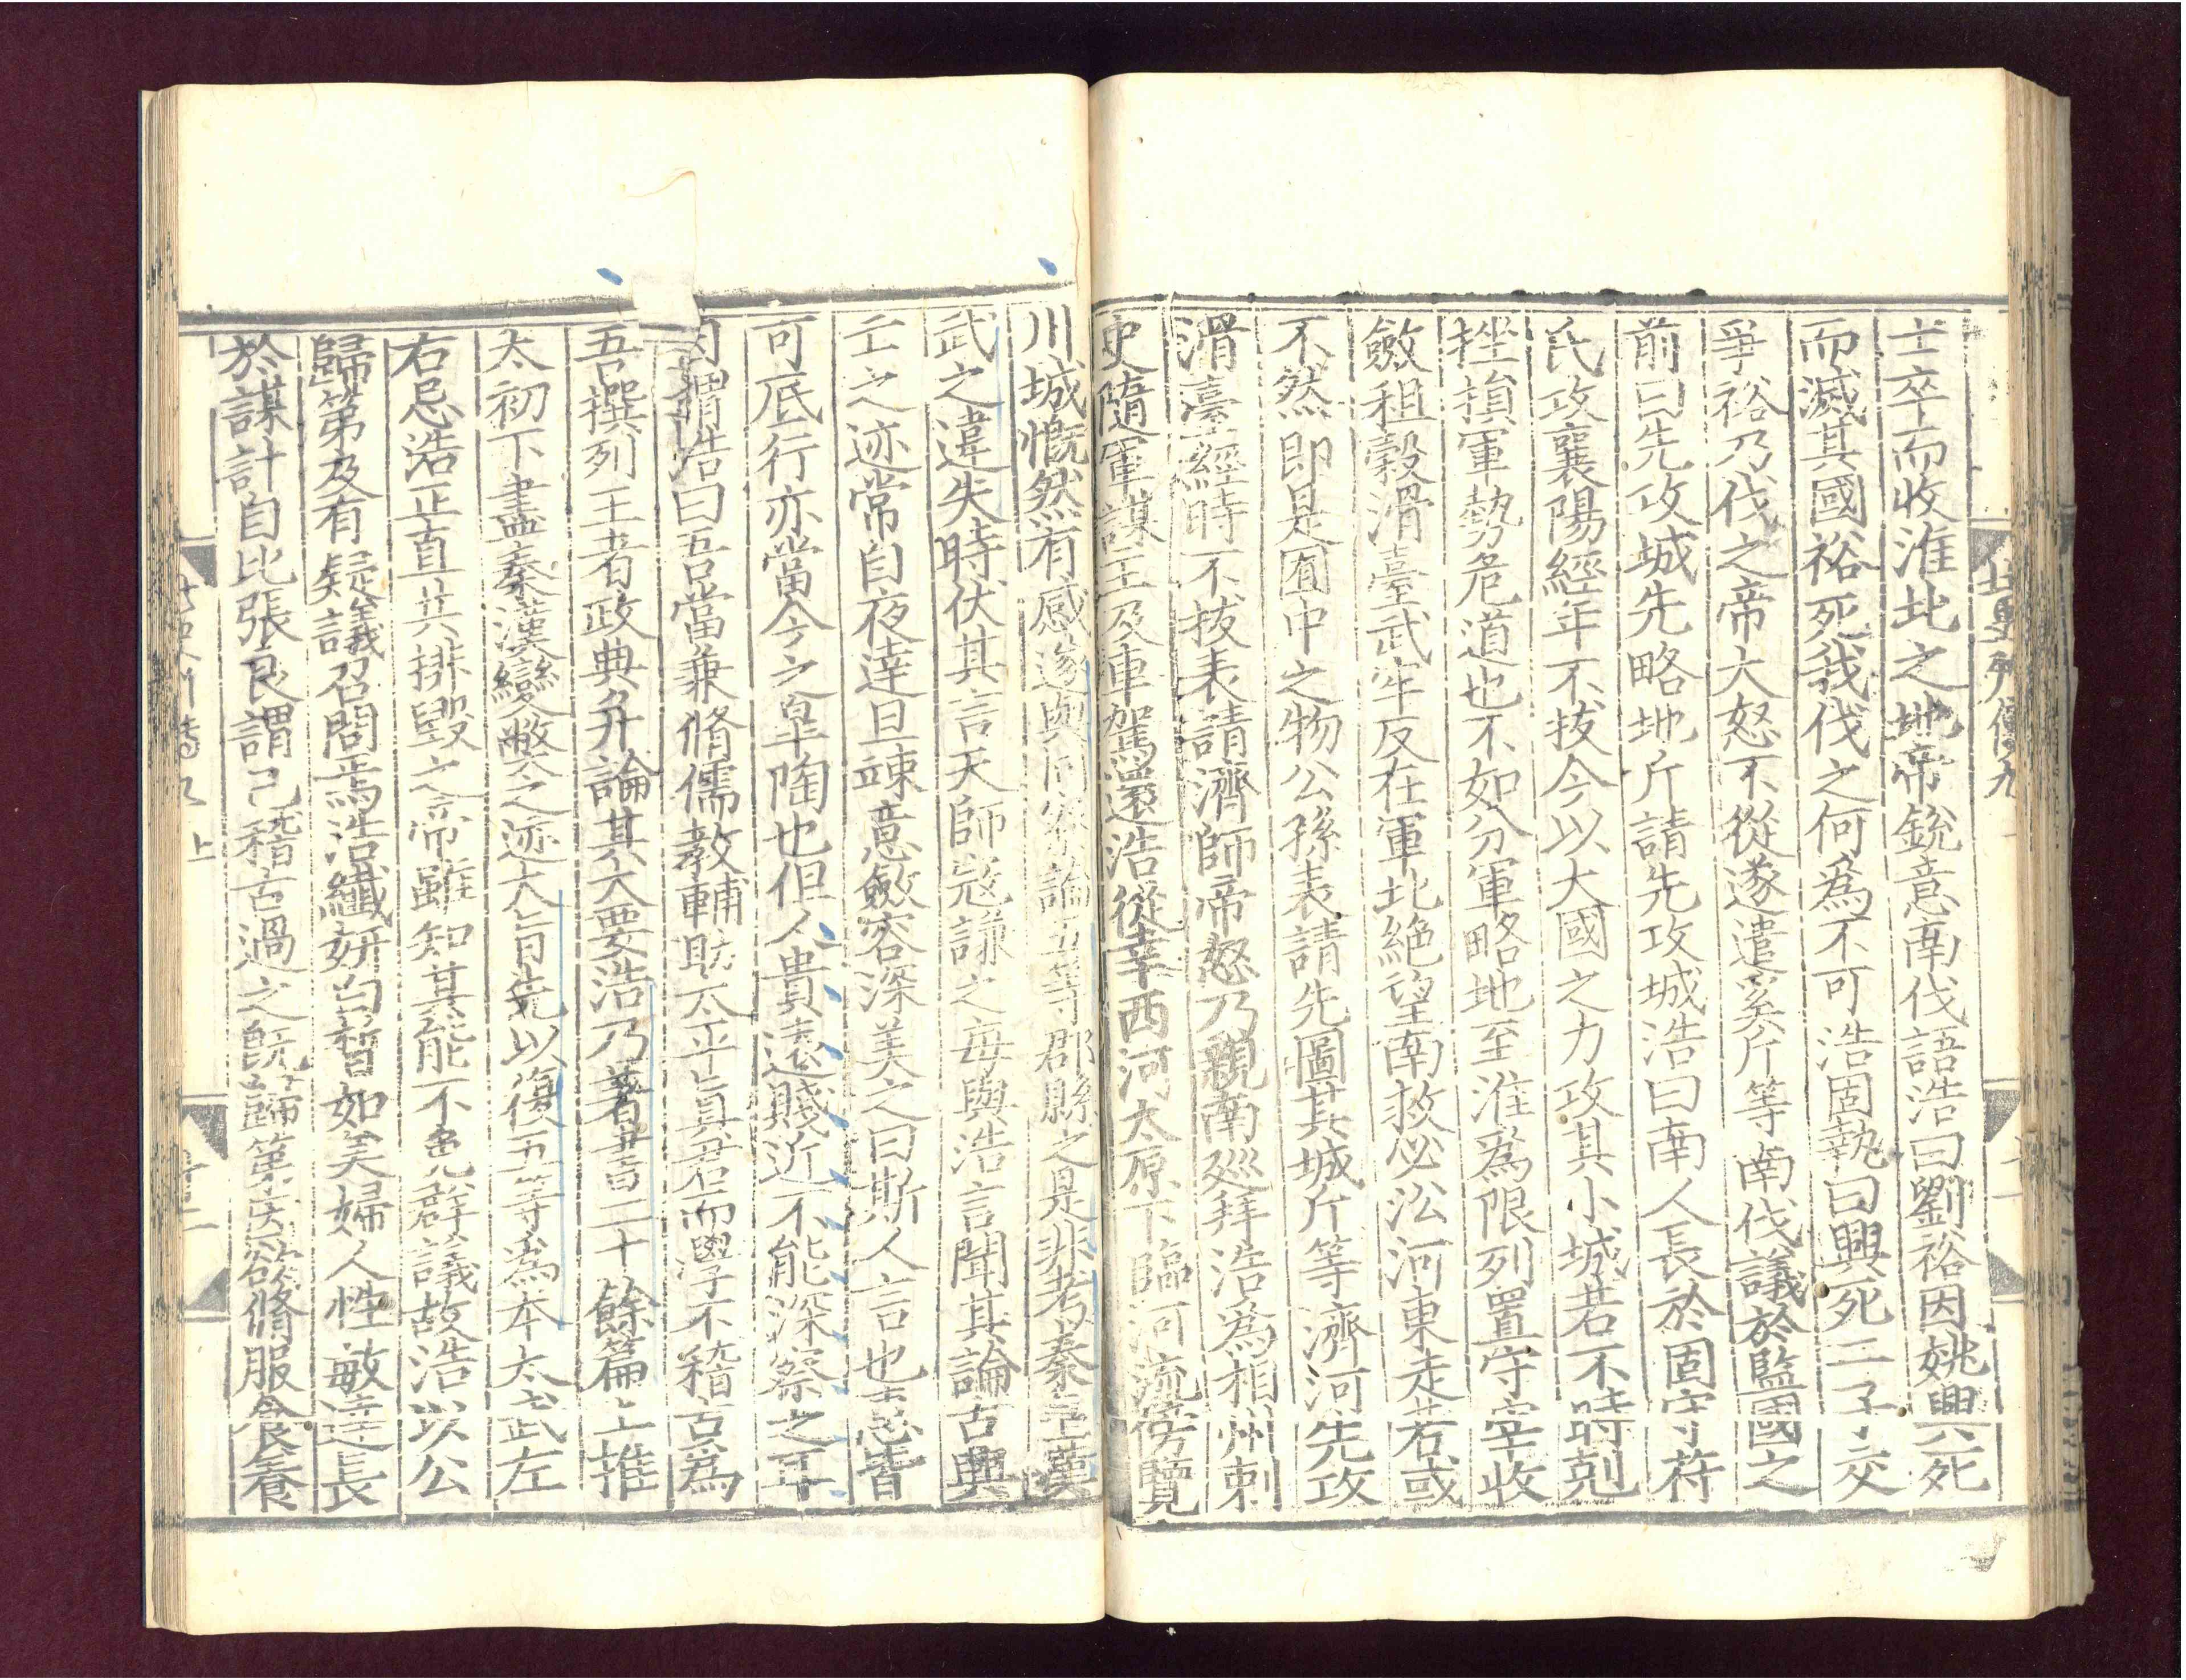 北史列傳九
士卒而收淮北之地帝銳意南伐語浩曰劉裕因姚興死
而滅其國裕死我伐之何為不可浩固執曰興死二子交
爭裕乃伐之帝大怒不從遂遣奚斤等南伐議於監國之
前曰先攻城先略地斤請先攻城浩曰南人長於固守苻
氏攻襄陽經年不拔今以大國之力攻其小城若不時剋
挫損軍勢危道也不如分軍略地至淮為限列置守宰收
斂租穀滑臺武牢反在軍北絕望南救必㳂河東走若或
不然即是囿中之物公孫表請先圖其城斤等濟河先攻
滑臺經時不拔表請濟師帝怒乃親南巡拜浩為相州刺
史隨軍謀主及車駕還浩從幸西河太原下臨河流傍覽
川城慨然有感遂與同寮論五等郡縣之是非考秦皇漢
武之違失時伏其言天師寇謙之每與浩言聞其論古興
亡之迹常自夜達旦竦意斂容深美之曰斯人言也惠皆
可底行亦當今之皐陶也但人貴遠賤近不能深察之耳
因謂浩曰吾當兼脩儒教輔助太平真君而學不稽古為
吾撰列王者政典并論其大要浩乃著書二十餘篇上推
太初下盡秦漢變弊之迹大旨先以復五等為本太武左
右忌浩正直共排毀之帝雖知其能不免群議故浩以公
歸第及有疑議召問焉浩纖妍白皙如美婦人性敏達長
於謀計自比張良謂己稽古過之既歸第因欲脩服食養